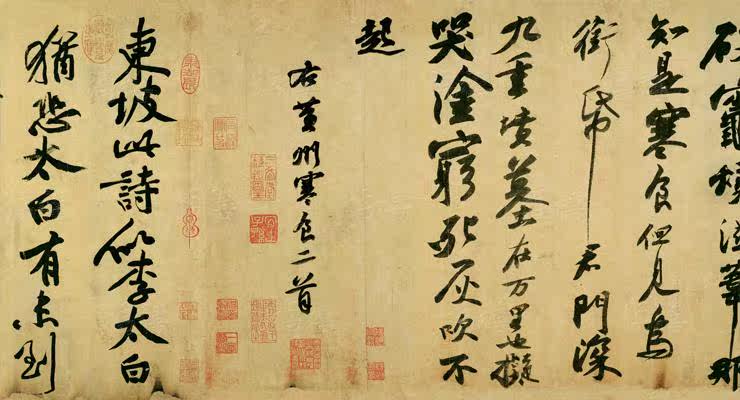 破竈燒濕葦那
知是寒食但見烏
銜帋君門深
九重墳墓在万里也擬
哭塗窮死灰吹不
起
右黃州寒食二首
東坡此詩似李太白
猶恐太白有未到